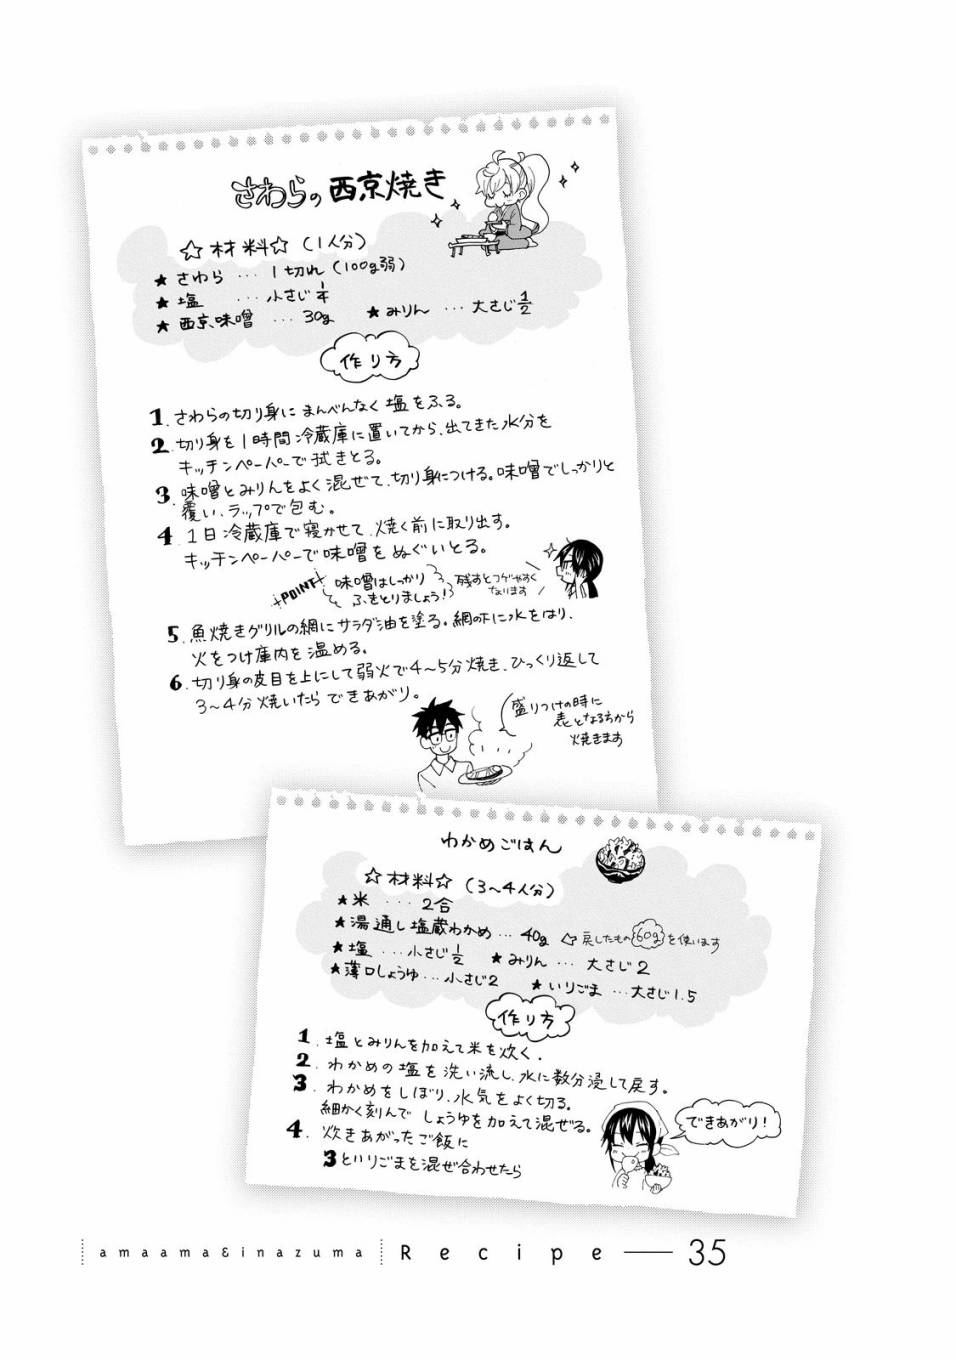 さわらの西京焼き
☆材料☆(1人分)
★さわら … 1切れ(100g弱)
★塩 … 小さじ1/4
★西京味噌 … 30g ★みりん … 大さじ1/2
作り方
1.さわらの切り身にまんべんなく塩をふる。
2.切り身を1時間冷蔵庫に置いてから、出てきた水分を
キッチンペーパーで拭きとる。
3.味噌とみりんをよく混ぜて、切り身につける。味噌でしっかりと
覆い、ラップで包む。
4.1日冷蔵庫で寝かせて、焼く前に取り出す。
キッチンペーパーで味噌をぬぐいとる。
POINT 味噌はしっかり
ふきとりましょう!
残すとコゲやすく
なります
5.魚焼きグリルの網にサラダ油を塗る。網の下に水をはり、
火をつけ庫内を温める。
6.切り身の皮目を上にして弱火で4~5分焼き、ひっくり返して
3~4分焼いたらできあがり。
盛りつけの時に
表となる方から
焼きます
わかめごはん
☆材料☆(3~4人分)
★米 … 2合
★湯通し塩蔵わかめ … 40g ⇦戻したもの60gを使います
★塩 … 小さじ1/2 ★みりん … 大さじ2
★薄口しょうゆ … 小さじ2 ★いりごま … 大さじ1.5
作り方
1.塩とみりんを加えて米を炊く。
2.わかめの塩を洗い流し、水に数分浸して戻す。
3.わかめをしぼり、水気をよく切る。
細かく刻んでしょうゆを加えて混ぜる。
4.炊きあがったご飯に
3といりごまを混ぜ合わせたら
できあがり!
amaama&inazuma Recipe — 35